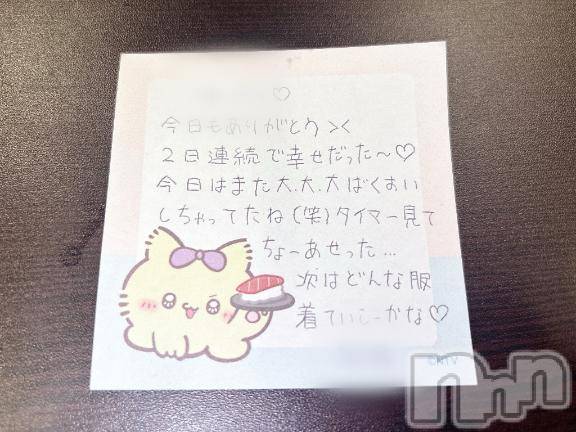 ♡
今日もありがとう><
2日連続で幸せだった〜♡
今日はまた大.大.大ばくおい
しちゃってたね(笑)タイマー見て
ちょーあせった...
次はどんな服
着ていこーかな♡
©KTV
nnn